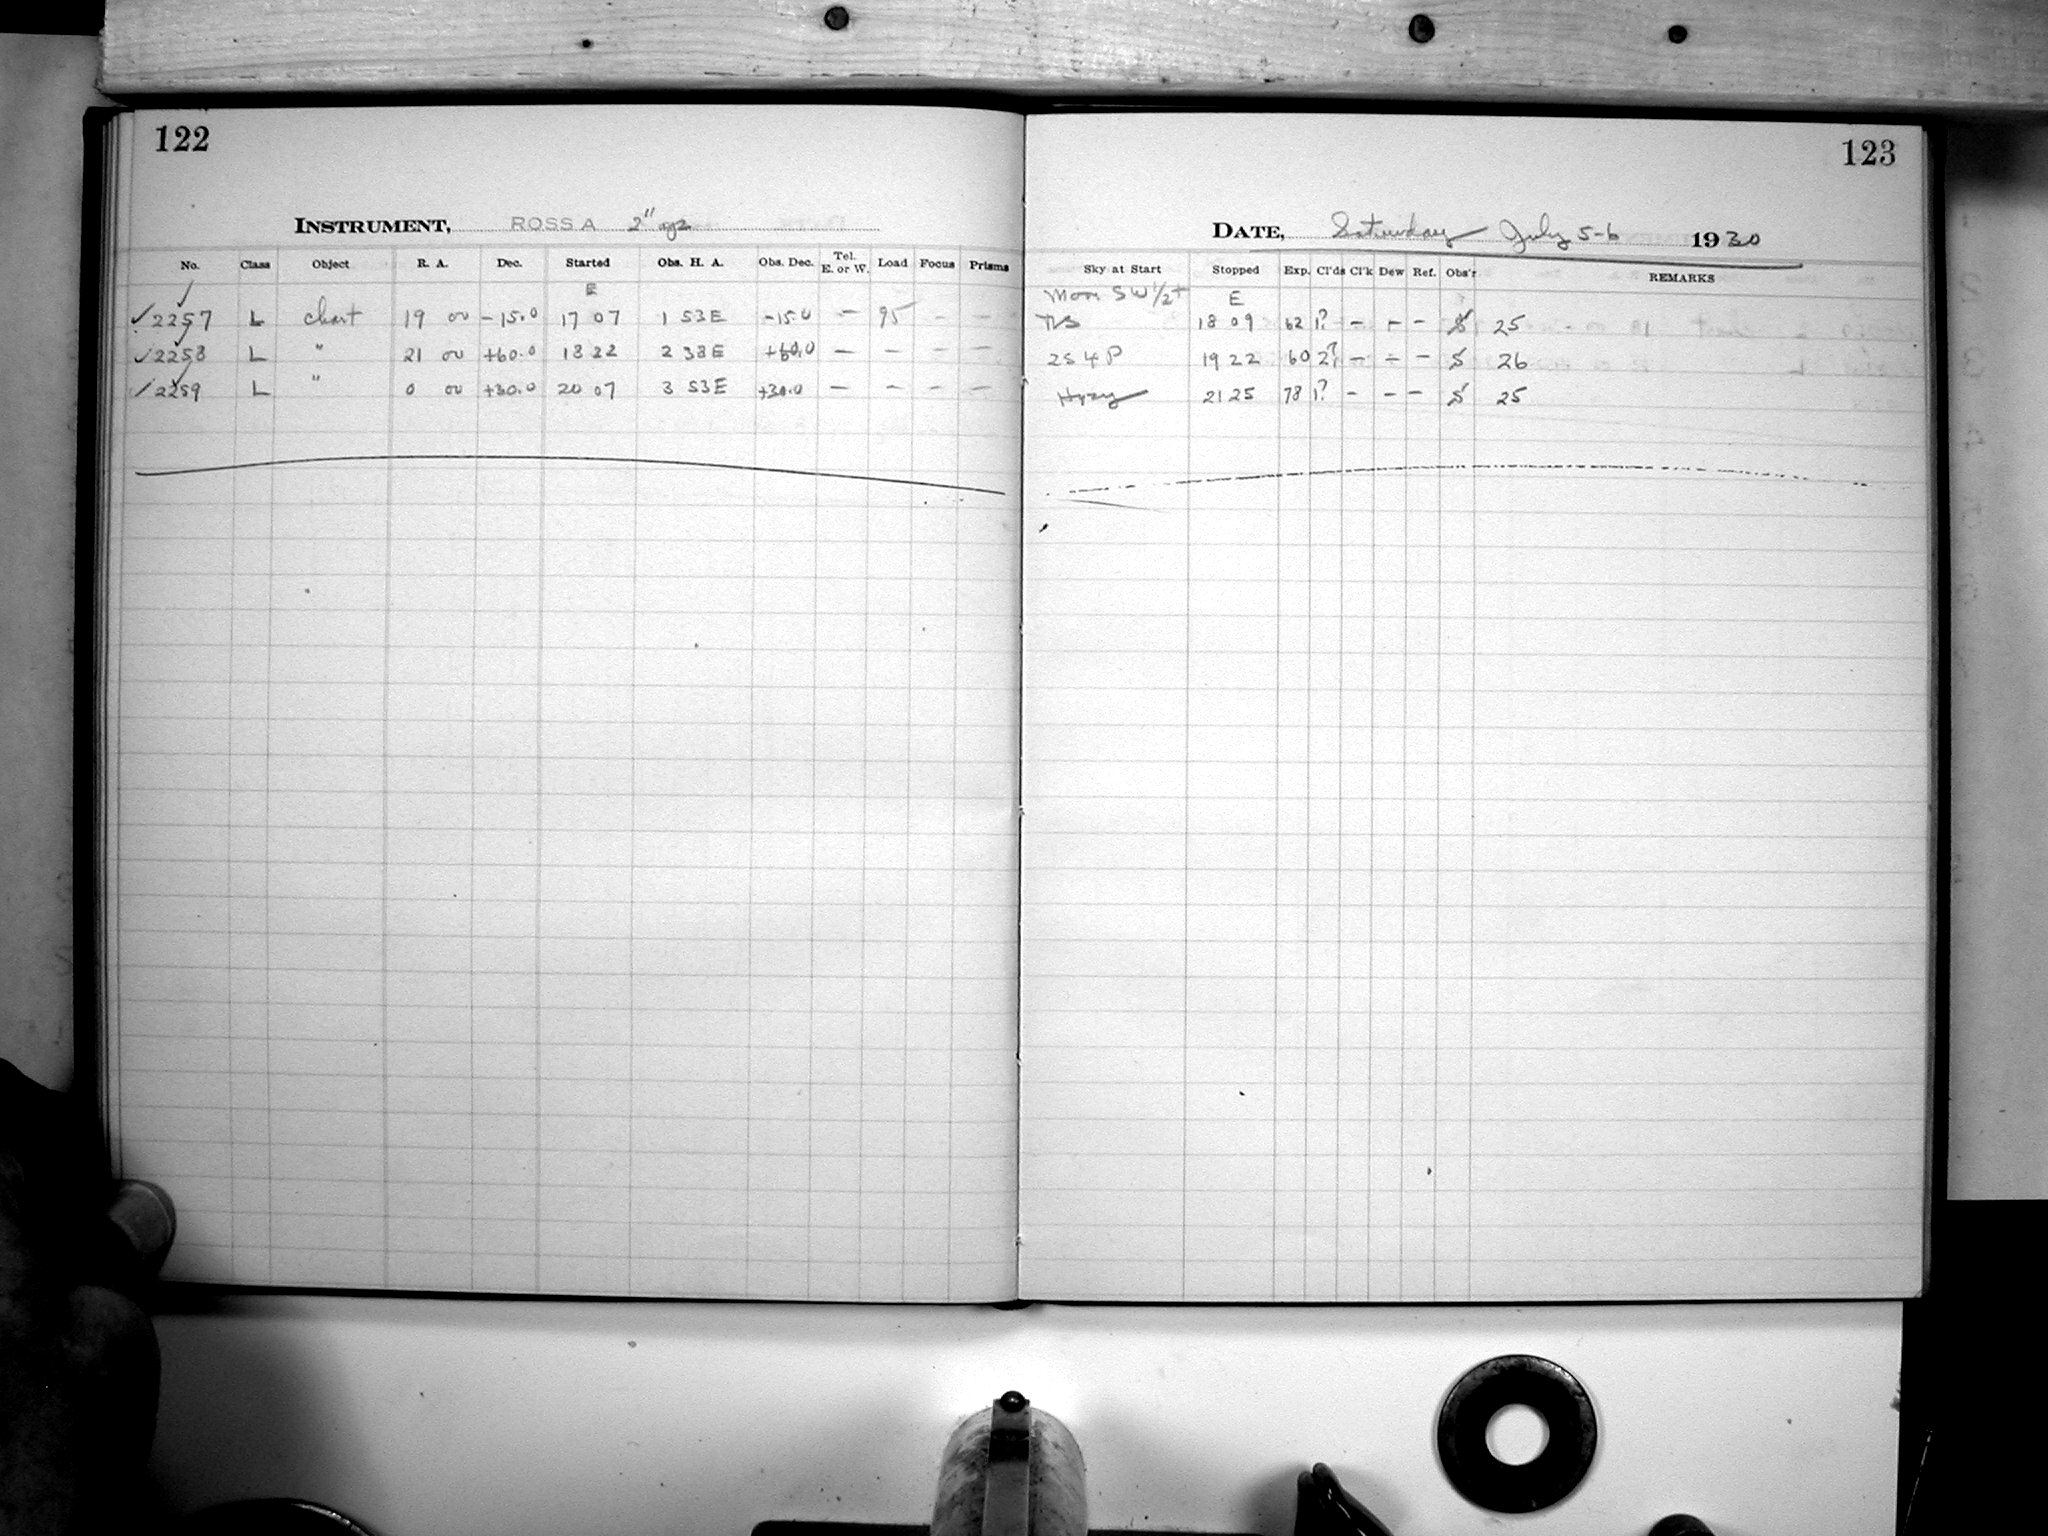 122
INSTRUMENT, ROSS A 2"
No. Class Object R. A. Dec. Started Obs. H. A. Obs. Dec. Tel. E. or W. Load Focus Prisms
E
✓ 2257 L chart 19 00 -15.0 17 07 1 53E -15.0 - 95 - -
✓ 2258 L " 21 00 +60.0 18 22 2 38E +60.0 - - - -
✓ 2259 L " 0 00 +30.0 20 07 3 53E +30.0 - - - -
123
DATE, Saturday July 5-6 1930
Sky at Start Stopped Exp. Cl'ds Cl'k Dew Ref. Obs'r REMARKS
Moon SW 1/2+ E
18 09 62 1? - - - S 25
2S4P 19 22 60 2? - - - S 26
Hazy 21 25 78 1? - - - S 25